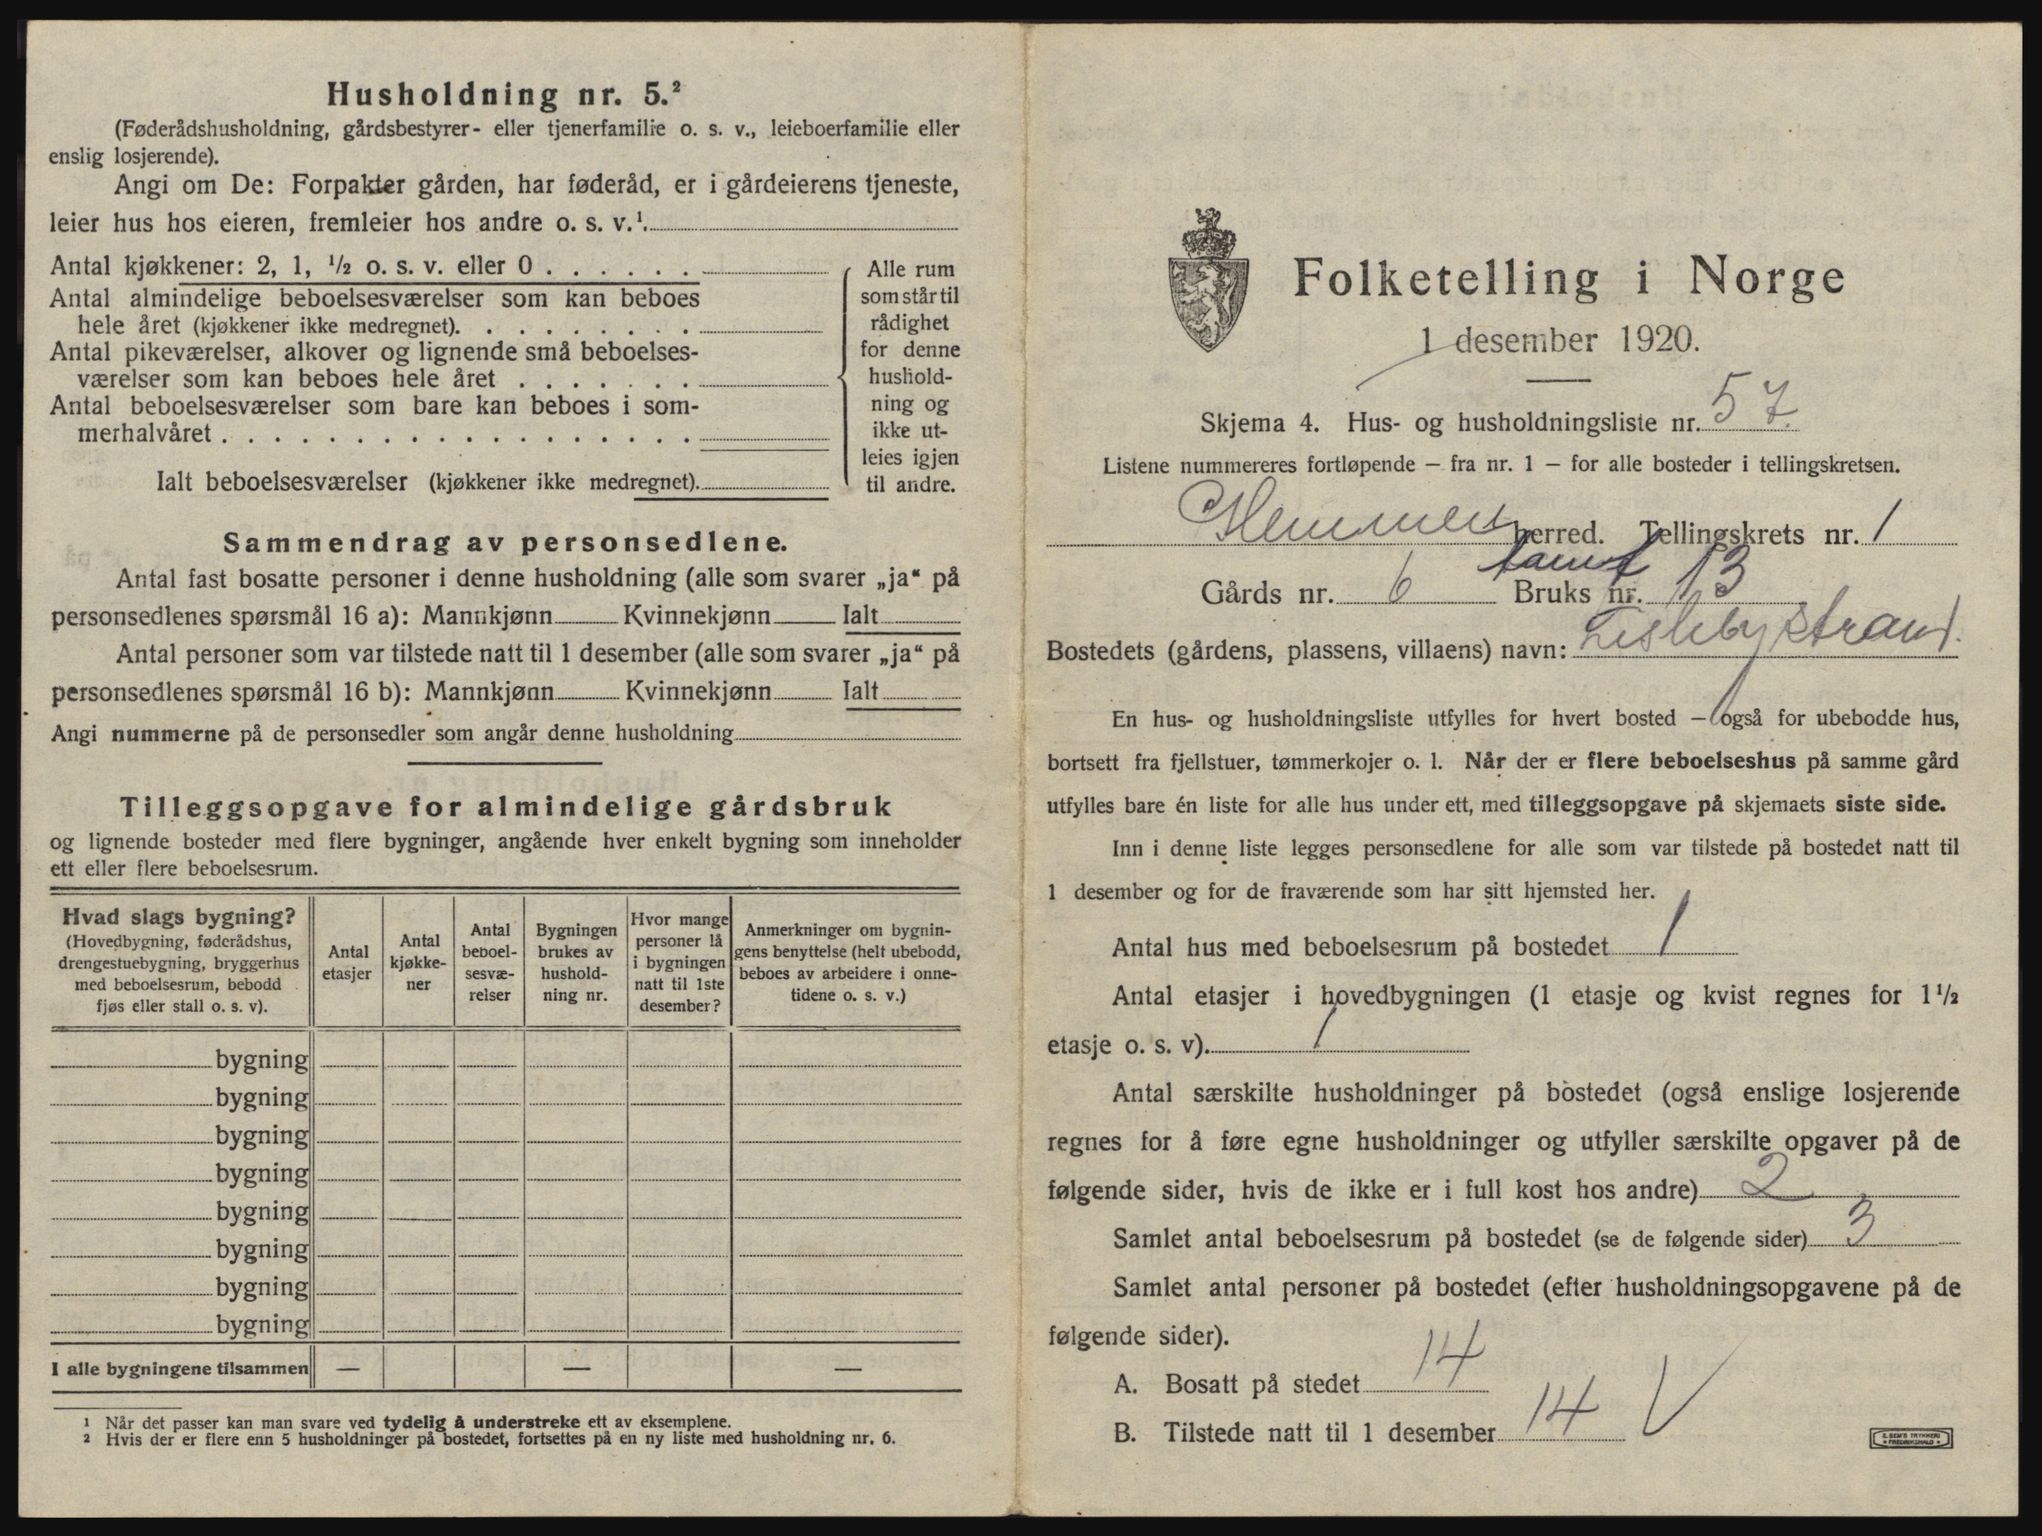 Husholdning nr. 5.²
(Føderådshusholdning, gårdsbestyrer- eller tjenerfamilie o. s. v., leieboerfamilie eller
enslig losjerende).
Angi om De: Forpakter gården, har føderåd, er i gårdeierens tjeneste,
leier hus hos eieren, fremleier hos andre o. s. v.¹.
Antal kjøkkener: 2, 1, ½ o. s. v. eller 0 . . . . . .
Antal almindelige beboelsesværelser som kan beboes
hele året (kjøkkener ikke medregnet). . . . . . . . .
Antal pikeværelser, alkover og lignende små beboelses-
værelser som kan beboes hele året . . . . . . .
Antal beboelsesværelser som bare kan beboes i som-
merhalvåret . . . . . . . . . . . . . . . . . .
Ialt beboelsesværelser (kjøkkener ikke medregnet).
Alle rum
som står til
rådighet
for denne
hushold-
ning og
ikke ut-
leies igjen
til andre.
Sammendrag av personsedlene.
Antal fast bosatte personer i denne husholdning (alle som svarer „ja“ på
personsedlenes spørsmål 16 a): Mannkjønn Kvinnekjønn Ialt
Antal personer som var tilstede natt til 1 desember (alle som svarer „ja“ på
personsedlenes spørsmål 16 b): Mannkjønn Kvinnekjønn Ialt
Angi nummerne på de personsedler som angår denne husholdning
Tilleggsopgave for almindelige gårdsbruk
og lignende bosteder med flere bygninger, angående hver enkelt bygning som inneholder
ett eller flere beboelsesrum.
Hvad slags bygning?
(Hovedbygning, føderådshus,
drengestuebygning, bryggerhus
med beboelsesrum, bebodd
fjøs eller stall o. s. v).
Antal
etasjer
Antal
kjøkke-
ner
Antal
beboel-
sesvæ-
relser
Bygningen
brukes av
hushold-
ning nr.
Hvor mange
personer lå
i bygningen
natt til 1ste
desember?
Anmerkninger om bygnin-
gens benyttelse (helt ubebodd,
beboes av arbeidere i onne-
tidene o. s. v.)
bygning
bygning
bygning
bygning
bygning
bygning
bygning
bygning
I alle bygningene tilsammen — — —
¹ Når det passer kan man svare ved tydelig å understreke ett av eksemplene.
² Hvis der er flere enn 5 husholdninger på bostedet, fortsettes på en ny liste med husholdning nr. 6.
Folketelling i Norge
1 desember 1920.
Skjema 4. Hus- og husholdningsliste nr. 57.
Listene nummereres fortløpende – fra nr. 1 – for alle bosteder i tellingskretsen.
Hemnes herred. Tellingskrets nr. 1
Gårds nr. 6 Bruks nr. 13
Bostedets (gårdens, plassens, villaens) navn:
En hus- og husholdningsliste utfylles for hvert bosted – også for ubebodde hus,
bortsett fra fjellstuer, tømmerkojer o. l. Når der er flere beboelseshus på samme gård
utfylles bare én liste for alle hus under ett, med tilleggsopgave på skjemaets siste side.
Inn i denne liste legges personsedlene for alle som var tilstede på bostedet natt til
1 desember og for de fraværende som har sitt hjemsted her.
Antal hus med beboelsesrum på bostedet 1
Antal etasjer i hovedbygningen (1 etasje og kvist regnes for 1½
etasje o. s. v). 1
Antal særskilte husholdninger på bostedet (også enslige losjerende
regnes for å føre egne husholdninger og utfyller særskilte opgaver på de
følgende sider, hvis de ikke er i full kost hos andre) 2
Samlet antal beboelsesrum på bostedet (se de følgende sider) 3
Samlet antal personer på bostedet (efter husholdningsopgavene på de
følgende sider).
A. Bosatt på stedet 14
B. Tilstede natt til 1 desember 14 V